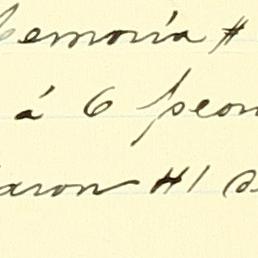 Memoria #
á 6 peon
aron #1 d